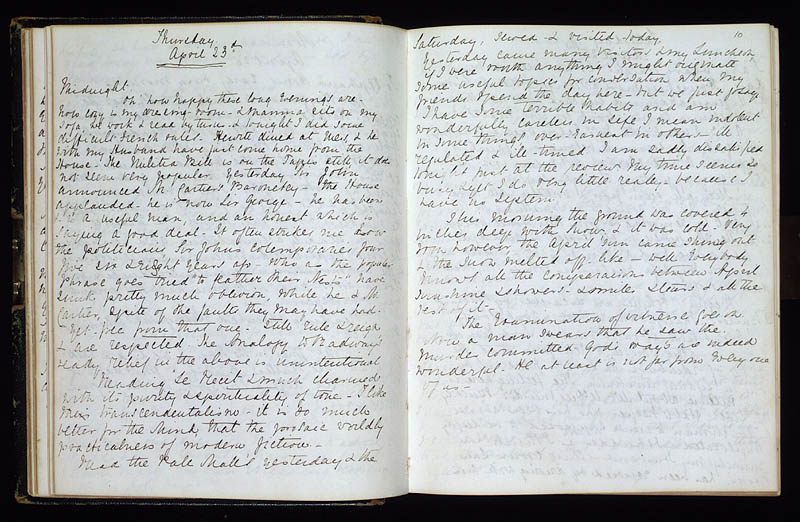 Thursday
April 23d
Midnight
Oh how happy these long Evenings are.
how cosy is my dressing-room. & Mamma sits on my
Sofa, we work & read by turns & tonight I did some
difficult French rules. Hewitt dined at &
with my Husband have just come home from the
House. The Militia Bill is on the Tapis still it does
not seem very popular. Yesterday Sir John
announced Mr Cartier's Baronetcy. The House
applauded. he is now Sir George. he has been
a useful man, and an honest which is
saying a good deal. It often strikes me how
the politicians Sir John's cotemporaries four
five six & eight years ago. Who as the popular
phrase goes tried to feather their Nests have
sunk pretty much oblivion, while he & Mr
Cartier, spite of the faults they may have had.
Yet free from that one. Still rule & reign
& are respected. The Analogy to
ready relief in the above is unintentional
Reading Le Recit & much charmed
with its purity & spirituality of tone. I like
this transcendentalism. it is so much
better for the Mind, than the prosaic worldly
practicalness of modern fiction.
I had the Kate Skeffs yesterday & the
10
Saturday, I & visited today.
Yesterday came many visitors & my Luncheon
if I were worth anything I might originate
some useful topics for conversation when my
friends spend the day here. but we just gossip.
I have some terrible habits and am
wonderfully careless in life I mean indolent
in some things over-earnest in others. ill
regulated & ill-timed. I am sadly dissatisfied
tonight just at the review My time seems so
busy yet I do very little really because I
have no system.
This morning the ground was covered 4
inches deep with snow & it was cold. Very
soon however the April sun came shining out
& the snow melted off. like - well Everybody
knows all the comparisons between April
sunshine & showers. & smiles & tears & all the
rest of it.
The Examination of witnesses goes on
now a man swears that he saw the
murder committed. God's ways are indeed
wonderful. He at least is not far from Every one
of us -